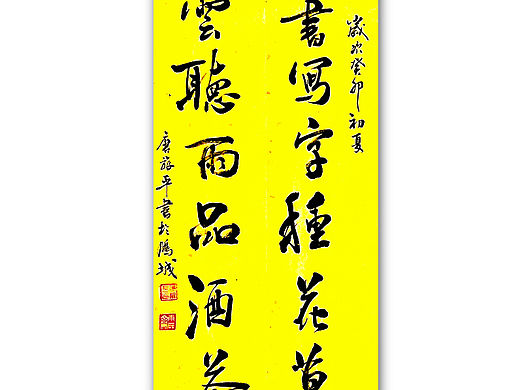 歲次癸卯初夏
書写字種花草
雲聽雨品酒
平書於城